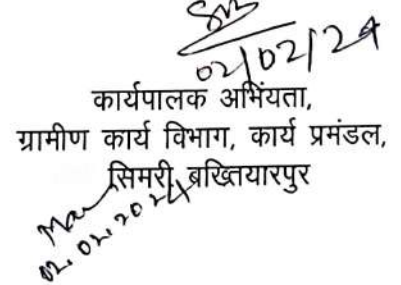 02/02/24
कार्यपालक अभियंता,
ग्रामीण कार्य विभाग, कार्य प्रमंडल,
सिमरी बख्तियारपुर
02.02.2024